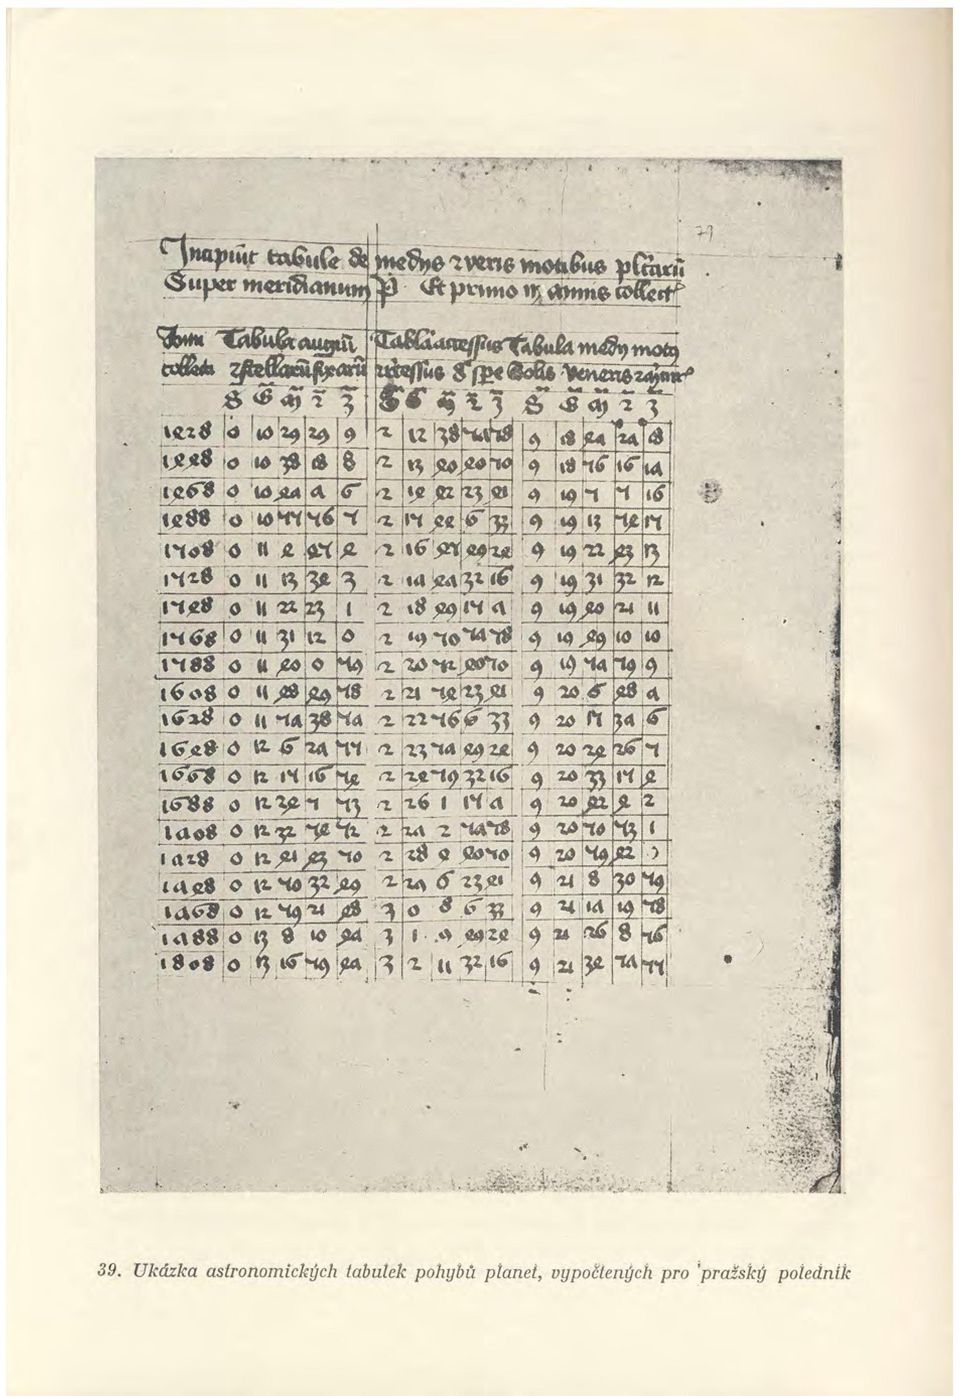 79
Incipiūt tabule de medijs ⁊ veris motibus pl̄tarū
Super meridianum P. Et primo in annis collectis
Anni Tabula augiū Tabla accessus Tabula medij motus
collecti ⁊ stellarū fixarū ⁊ recessus 8 spe Solis Veneris ⁊ mercurij
S G m 2 3 S G m 2 3 S G m 2 3
1428 0 10 29 29 9 2 12 38 57 58 9 18 47 27 18
1448 0 10 38 18 8 2 13 40 40 50 9 18 56 16 17
1468 0 10 47 7 6 2 14 42 23 41 9 19 5 5 16
1488 0 10 55 56 5 2 15 44 6 33 9 19 13 54 15
1508 0 11 4 45 4 2 16 45 49 24 9 19 22 43 13
1528 0 11 13 34 3 2 17 47 32 16 9 19 31 32 12
1548 0 11 22 23 1 2 18 49 15 7 9 19 40 21 11
1568 0 11 31 12 0 2 19 50 57 58 9 19 49 10 10
1588 0 11 40 0 59 2 20 52 40 50 9 19 57 59 9
1608 0 11 48 49 58 2 21 54 23 41 9 20 6 48 7
1628 0 11 57 38 57 2 22 56 6 33 9 20 15 37 6
1648 0 12 6 27 55 2 23 57 49 24 9 20 24 26 5
1668 0 12 15 16 54 2 24 59 32 16 9 20 33 15 4
1688 0 12 24 5 53 2 26 1 15 7 9 20 42 4 2
1708 0 12 32 54 52 2 27 2 57 58 9 20 50 53 1
1728 0 12 41 43 50 2 28 4 40 50 9 20 59 42
1748 0 12 50 32 49 2 29 6 23 41 9 21 8 30 59
1768 0 12 59 21 48 3 0 8 6 33 9 21 17 19 58
1788 0 13 8 10 47 3 1 9 49 24 9 21 26 8 56
1808 0 13 16 59 47 3 2 11 32 16 9 21 34 57 55
39. Ukázka astronomických tabulek pohybů planet, vypočtených pro pražský poledník